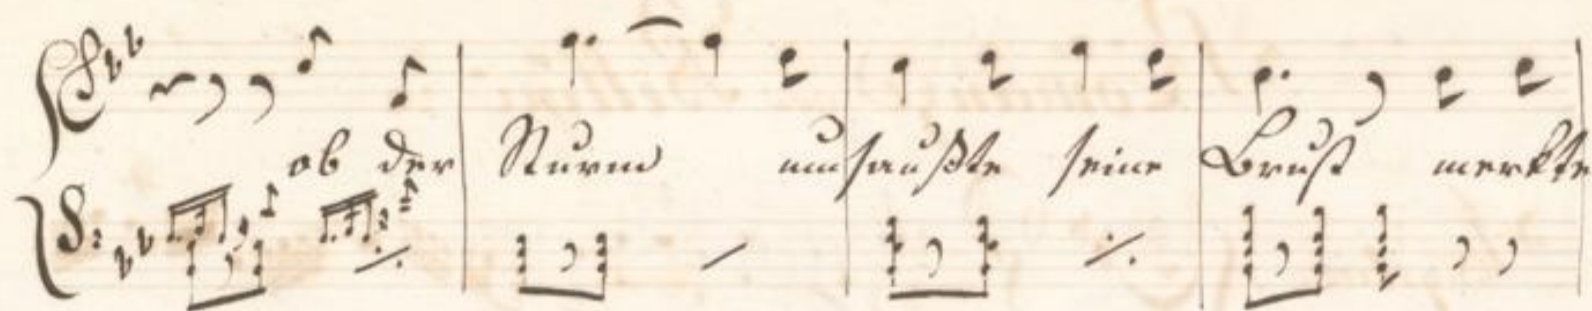 ob der Sturm umsaußte seine Brust merkte